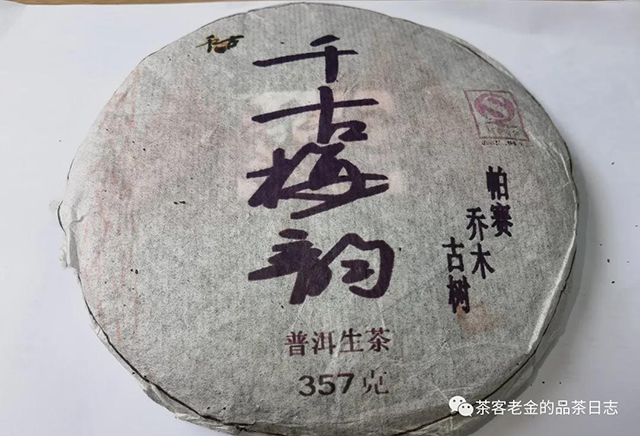 千古
千古梅韵
帕赛
乔木
古树
普洱生茶
357克
茶客老金的品茶日志